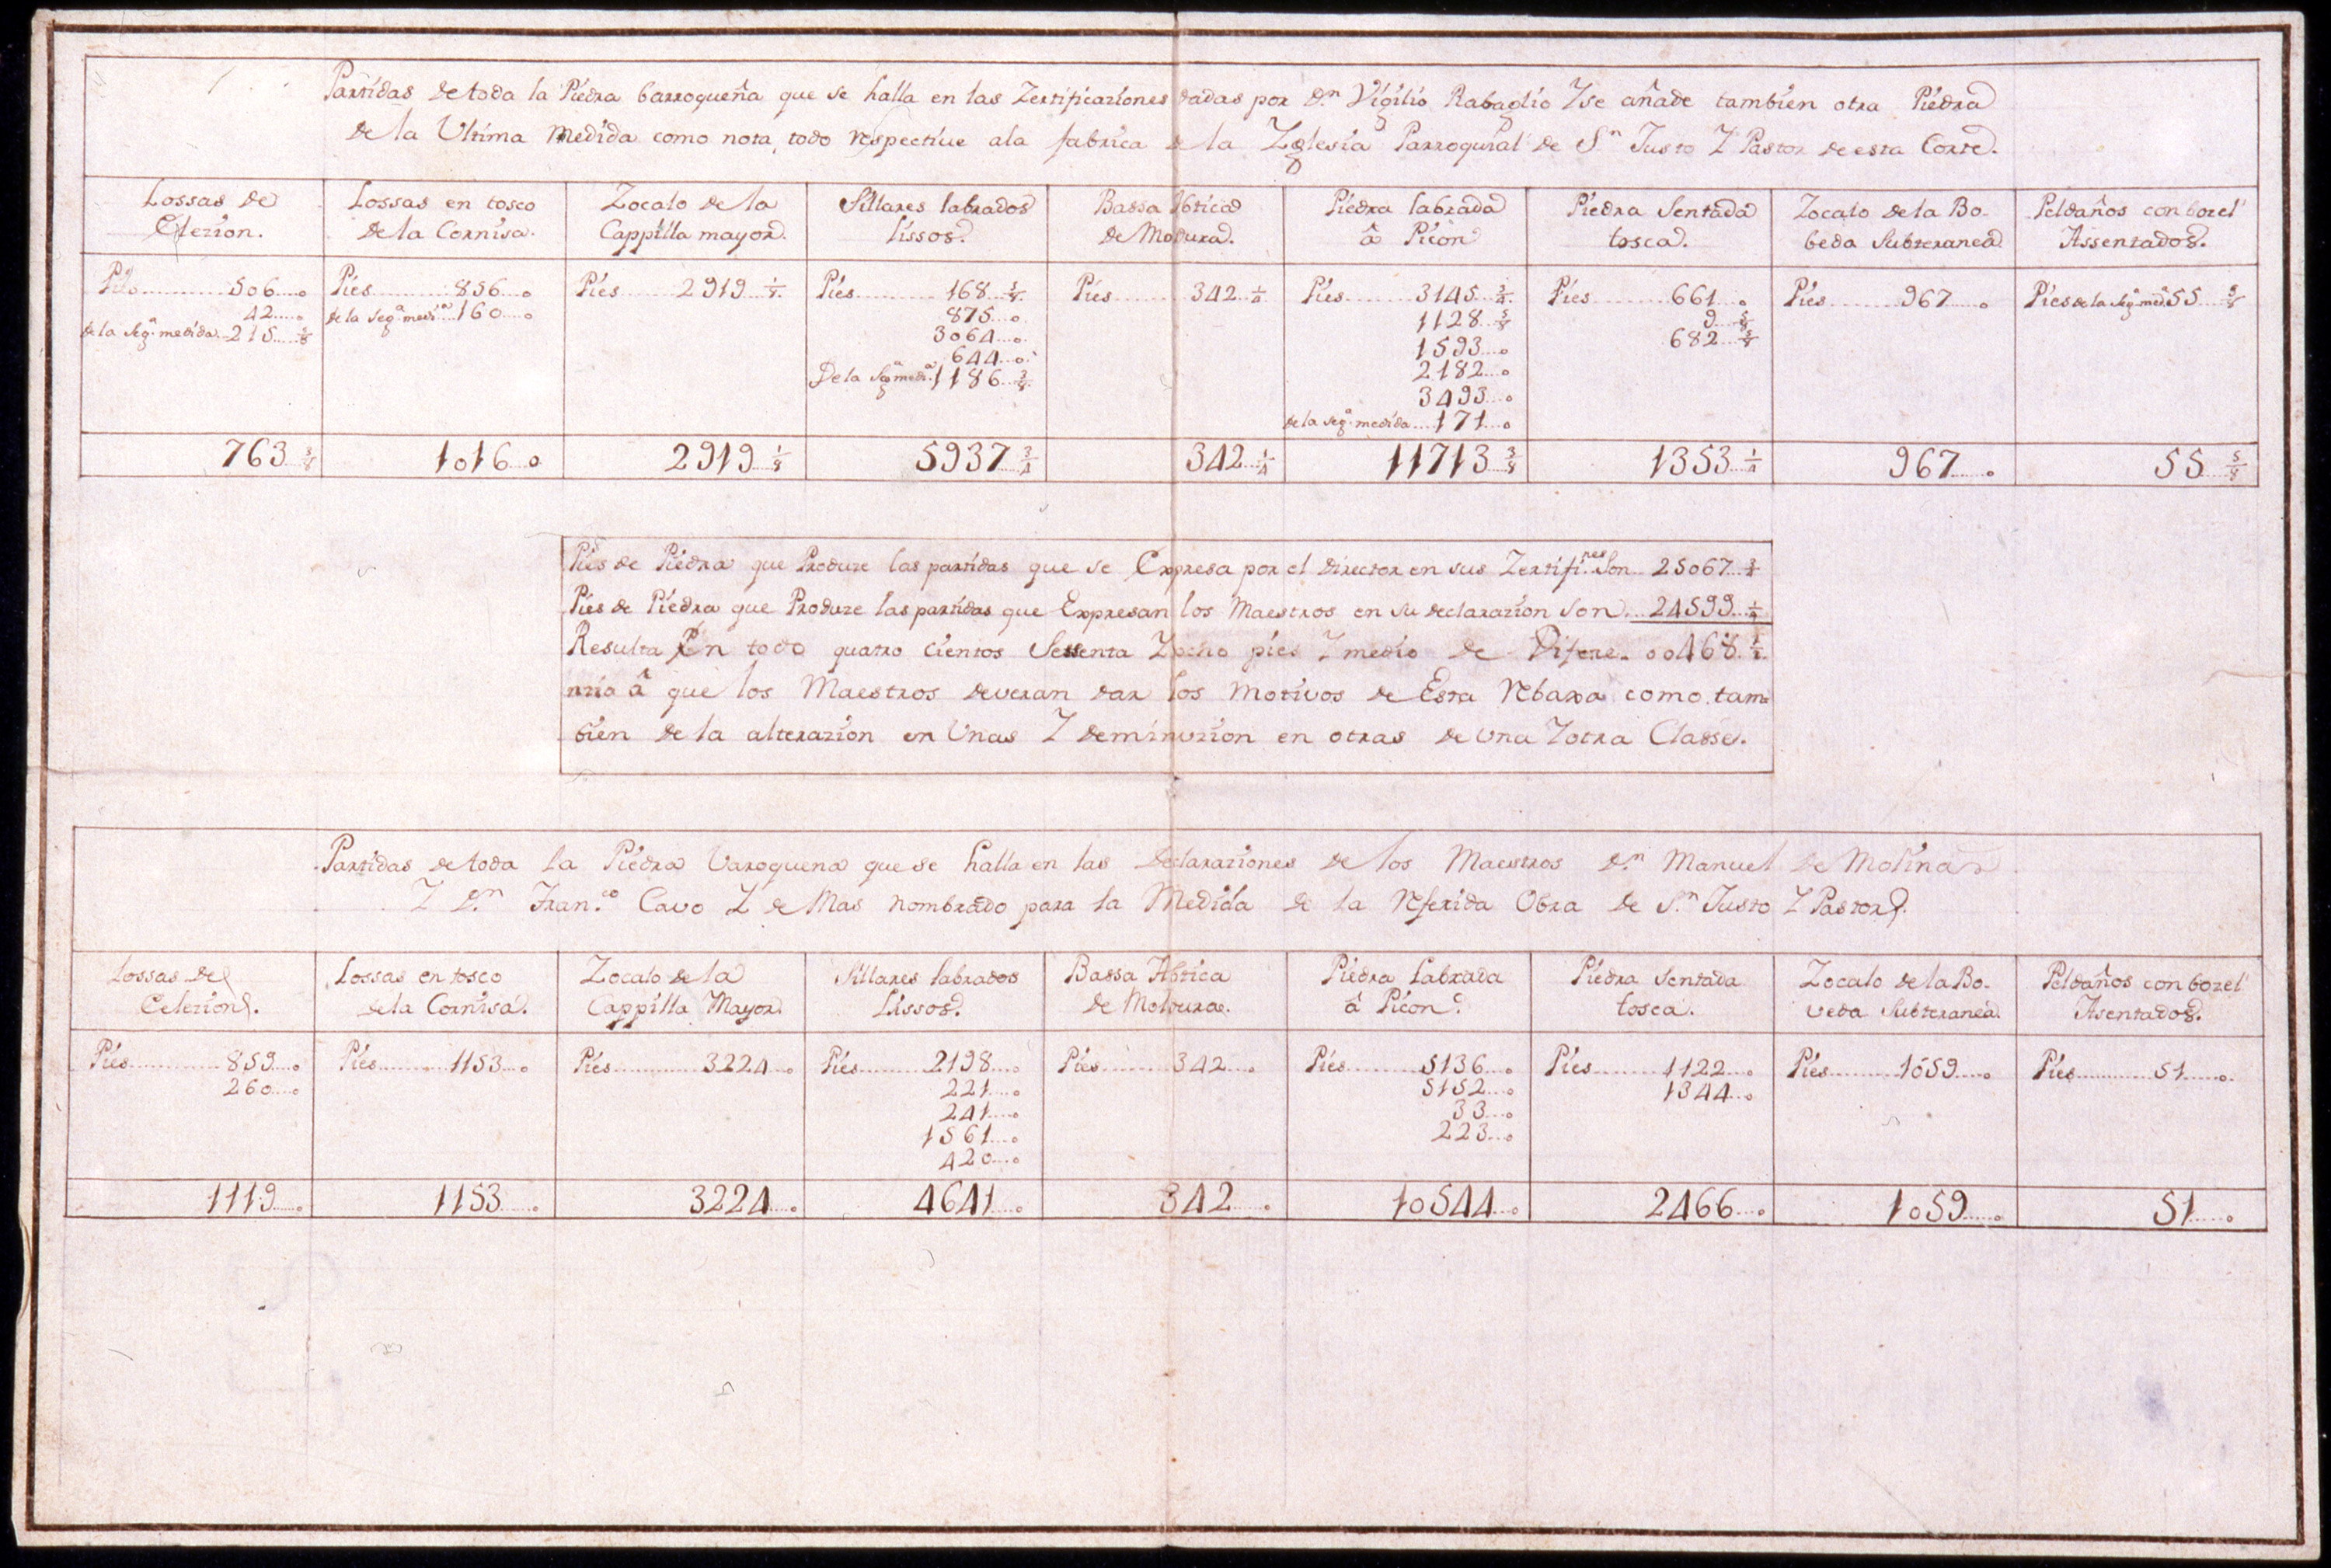 Partidas de toda la Piedra barroqueña que se halla en las Zertificaziones dadas por D.n Vigilio Rabaglio Y se añade tambien otra Piedra
de la Ultima Medida como nota, todo respective ala fabrica de la Yglesia Parroquial de S.n Justo Y Pastor de esta Corte.
Lossas de
Elezion.
Lossas en tosco
de la Cornisa.
Zocalo de la
Cappilla mayor.
Sillares labrados
lissos.
Bassa Abtica
de Modura.
Piedra labrada
â Picon
Piedra Sentada
tosca.
Zocalo de la Bo-
beda Subteranea
Peldaños con bozel
Assentados.
Pies 506 o
42 o
de la Seg.a medida 215 3/8
Pies 856 o
de la Seg.a medi.a 160 o
Pies 2919 1/8
Pies 168 3/8
875 o
3064 o
644 o
De la Seg.a medi.a 1186 3/8
Pies 342 1/4
Pies 3145 3/4
1128 5/8
1593 o
2182 o
3493 o
de la Seg.a medida 171 o
Pies 661 o
9 5/8
682 5/8
Pies 967 o
Pies de la Seg.a med.a 55 5/8
763 3/8
1016 o
2919 1/8
5937 3/4
342 1/4
11713 3/8
1353 1/4
967 o
55 5/8
Pies de Piedra que Produze las partidas que se Expresa por el Director en sus Zertifi.nes Son 25067 3/4
Pies de Piedra que Produze las partidas que Expresan los Maestros en su declarazion Son 24599 1/4
Resulta En todo quatro cientos Sessenta Y ocho pies Y medio de Difere- 00468 1/2
nzia â que los Maestros deveran dar los motivos de Esta Rebaxa como tam-
bien de la alterazion en Unas Y deminuzion en otras de Una Y otra Classe.
Partidas de toda la Piedra Varoquena que se halla en las Declaraziones de los Maestros D.n Manuel de Molina
Y D.n Fran.co Cavo Y de Mas nombrado para la Medida de la Referida Obra de S.n Justo Y Pastor.
Lossas de
Elezion.
Lossas en tosco
de la Cornisa.
Zocalo de la
Cappilla Mayor.
Sillares labrados
Lissos.
Bassa Abtica
de Moldura.
Piedra Labrada
â Picon.
Piedra Sentada
tosca.
Zocalo de la Bo-
veda Subteranea.
Peldaños con bozel
Asentados.
Pies 859 o
260 o
Pies 1153 o
Pies 3224 o
Pies 2198 o
221 o
241 o
1561 o
420 o
Pies 342 o
Pies 5136 o
5152 o
33 o
223 o
Pies 1122 o
1344 o
Pies 1059 o
Pies 51 o
1119 o
1153 o
3224 o
4641 o
342 o
10544 o
2466 o
1059 o
51 o